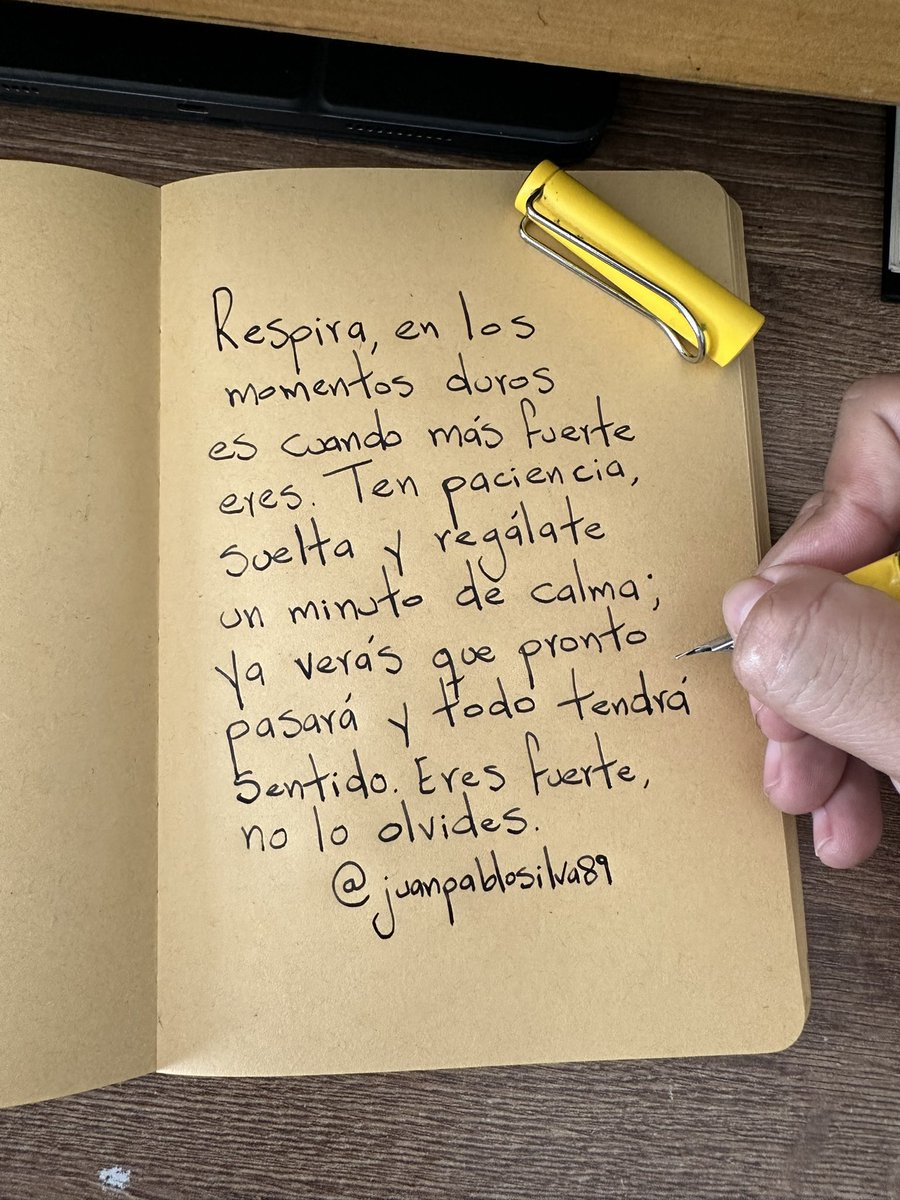 Respira, en los
momentos duros
es cuando más fuerte
eres. Ten paciencia,
suelta y regálate
un minuto de calma;
ya verás que pronto
pasará y todo tendrá
sentido. Eres fuerte,
no lo olvides.
@juanpablosilva89